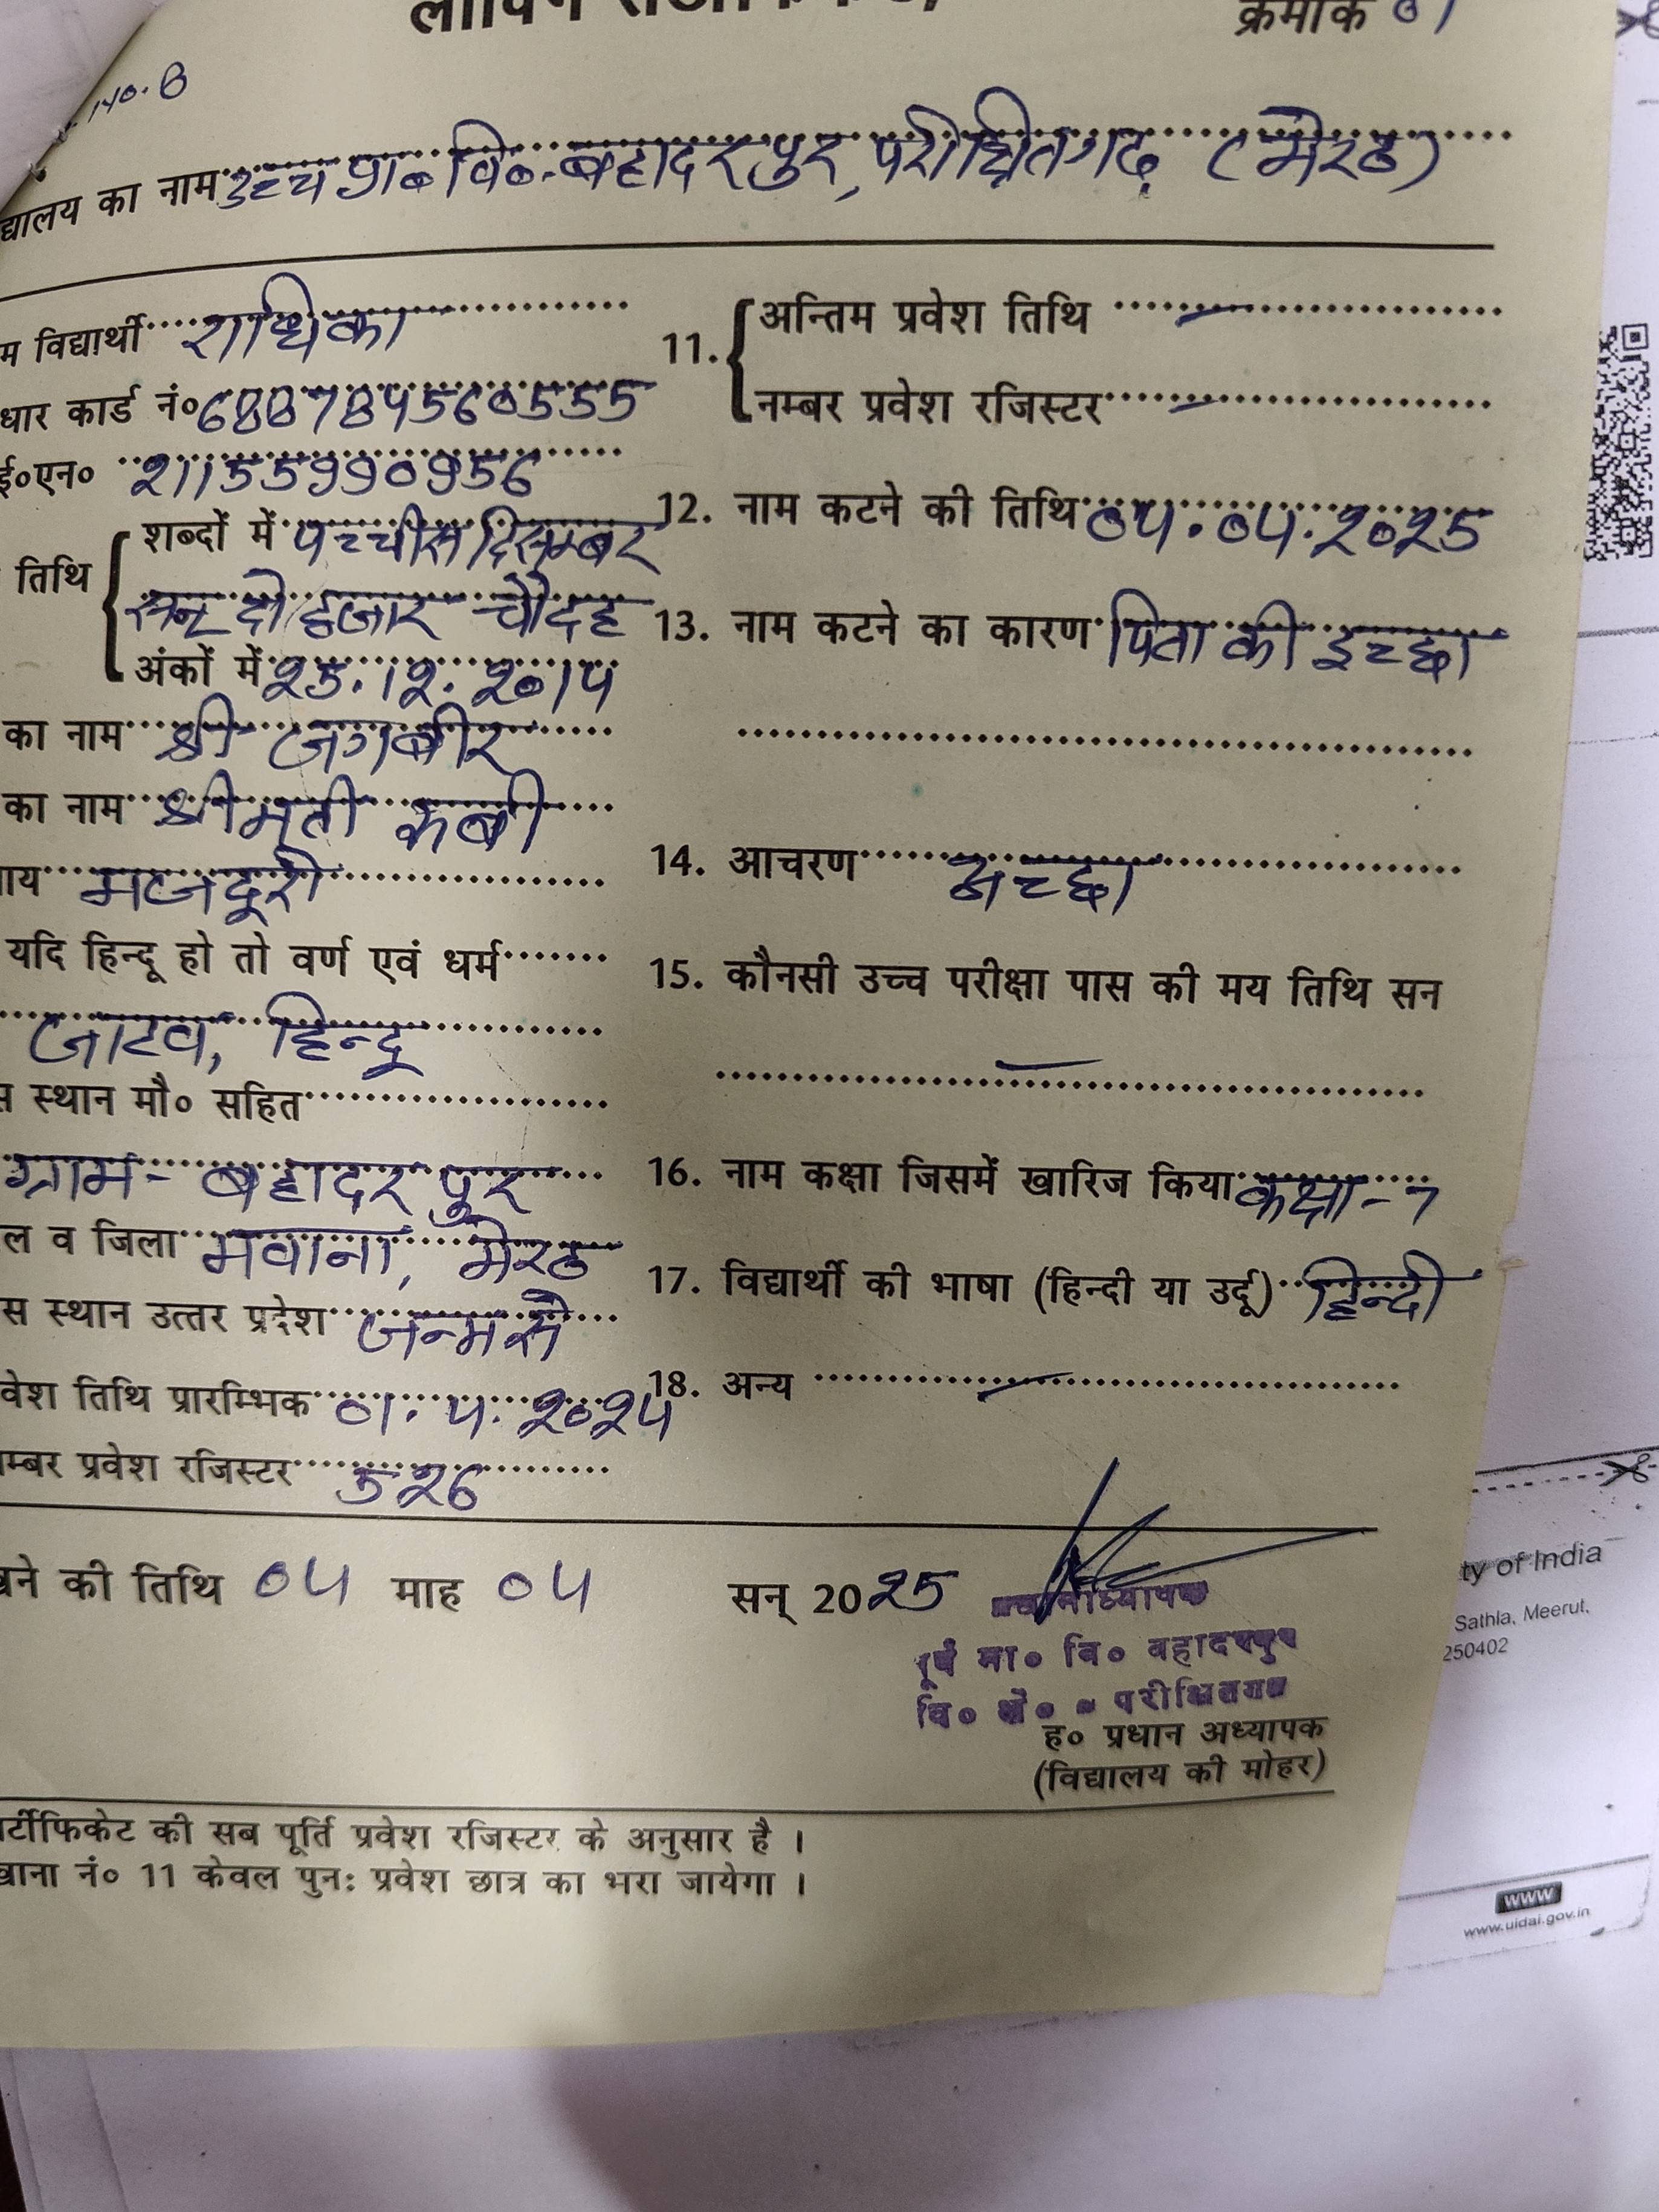 क्रमांक 01
140.B
द्यालय का नाम उच्च प्रा० वि०-बहादरपुर, परीक्षितगढ़ (मेरठ)
म विद्यार्थी राधिका
धार कार्ड नं०
ई०एन० 21155990956
तिथि
शब्दों में पच्चीस दिसम्बर
सन् दो हजार चौदह
अंकों में 25.12.2014
का नाम श्री जगबीर
का नाम श्रीमती
ाय मजदूरी
यदि हिन्दू हो तो वर्ण एवं धर्म
जाटव, हिन्दू
स स्थान मौ० सहित
ग्राम- बहादरपुर
ल व जिला मवाना, मेरठ
स स्थान उत्तर प्रदेश जन्म से
वेश तिथि प्रारम्भिक 01.4.2024
म्बर प्रवेश रजिस्टर 526
11. अन्तिम प्रवेश तिथि —
नम्बर प्रवेश रजिस्टर —
12. नाम कटने की तिथि 04.04.2025
13. नाम कटने का कारण पिता की इच्छा
14. आचरण अच्छा
15. कौनसी उच्च परीक्षा पास की मय तिथि सन
—
16. नाम कक्षा जिसमें खारिज किया कक्षा-7
17. विद्यार्थी की भाषा (हिन्दी या उर्दू) हिन्दी
18. अन्य —
ने की तिथि 04 माह 04 सन् 2025
पूर्व मा० वि० बहादरपुर
वि० क्षे० - परीक्षितगढ़
ह० प्रधान अध्यापक
(विद्यालय की मोहर)
र्टीफिकेट की सब पूर्ति प्रवेश रजिस्टर के अनुसार है ।
खाना नं० 11 केवल पुनः प्रवेश छात्र का भरा जायेगा ।
ty of India
Sathla, Meerut,
250402
www
www.uidai.gov.in